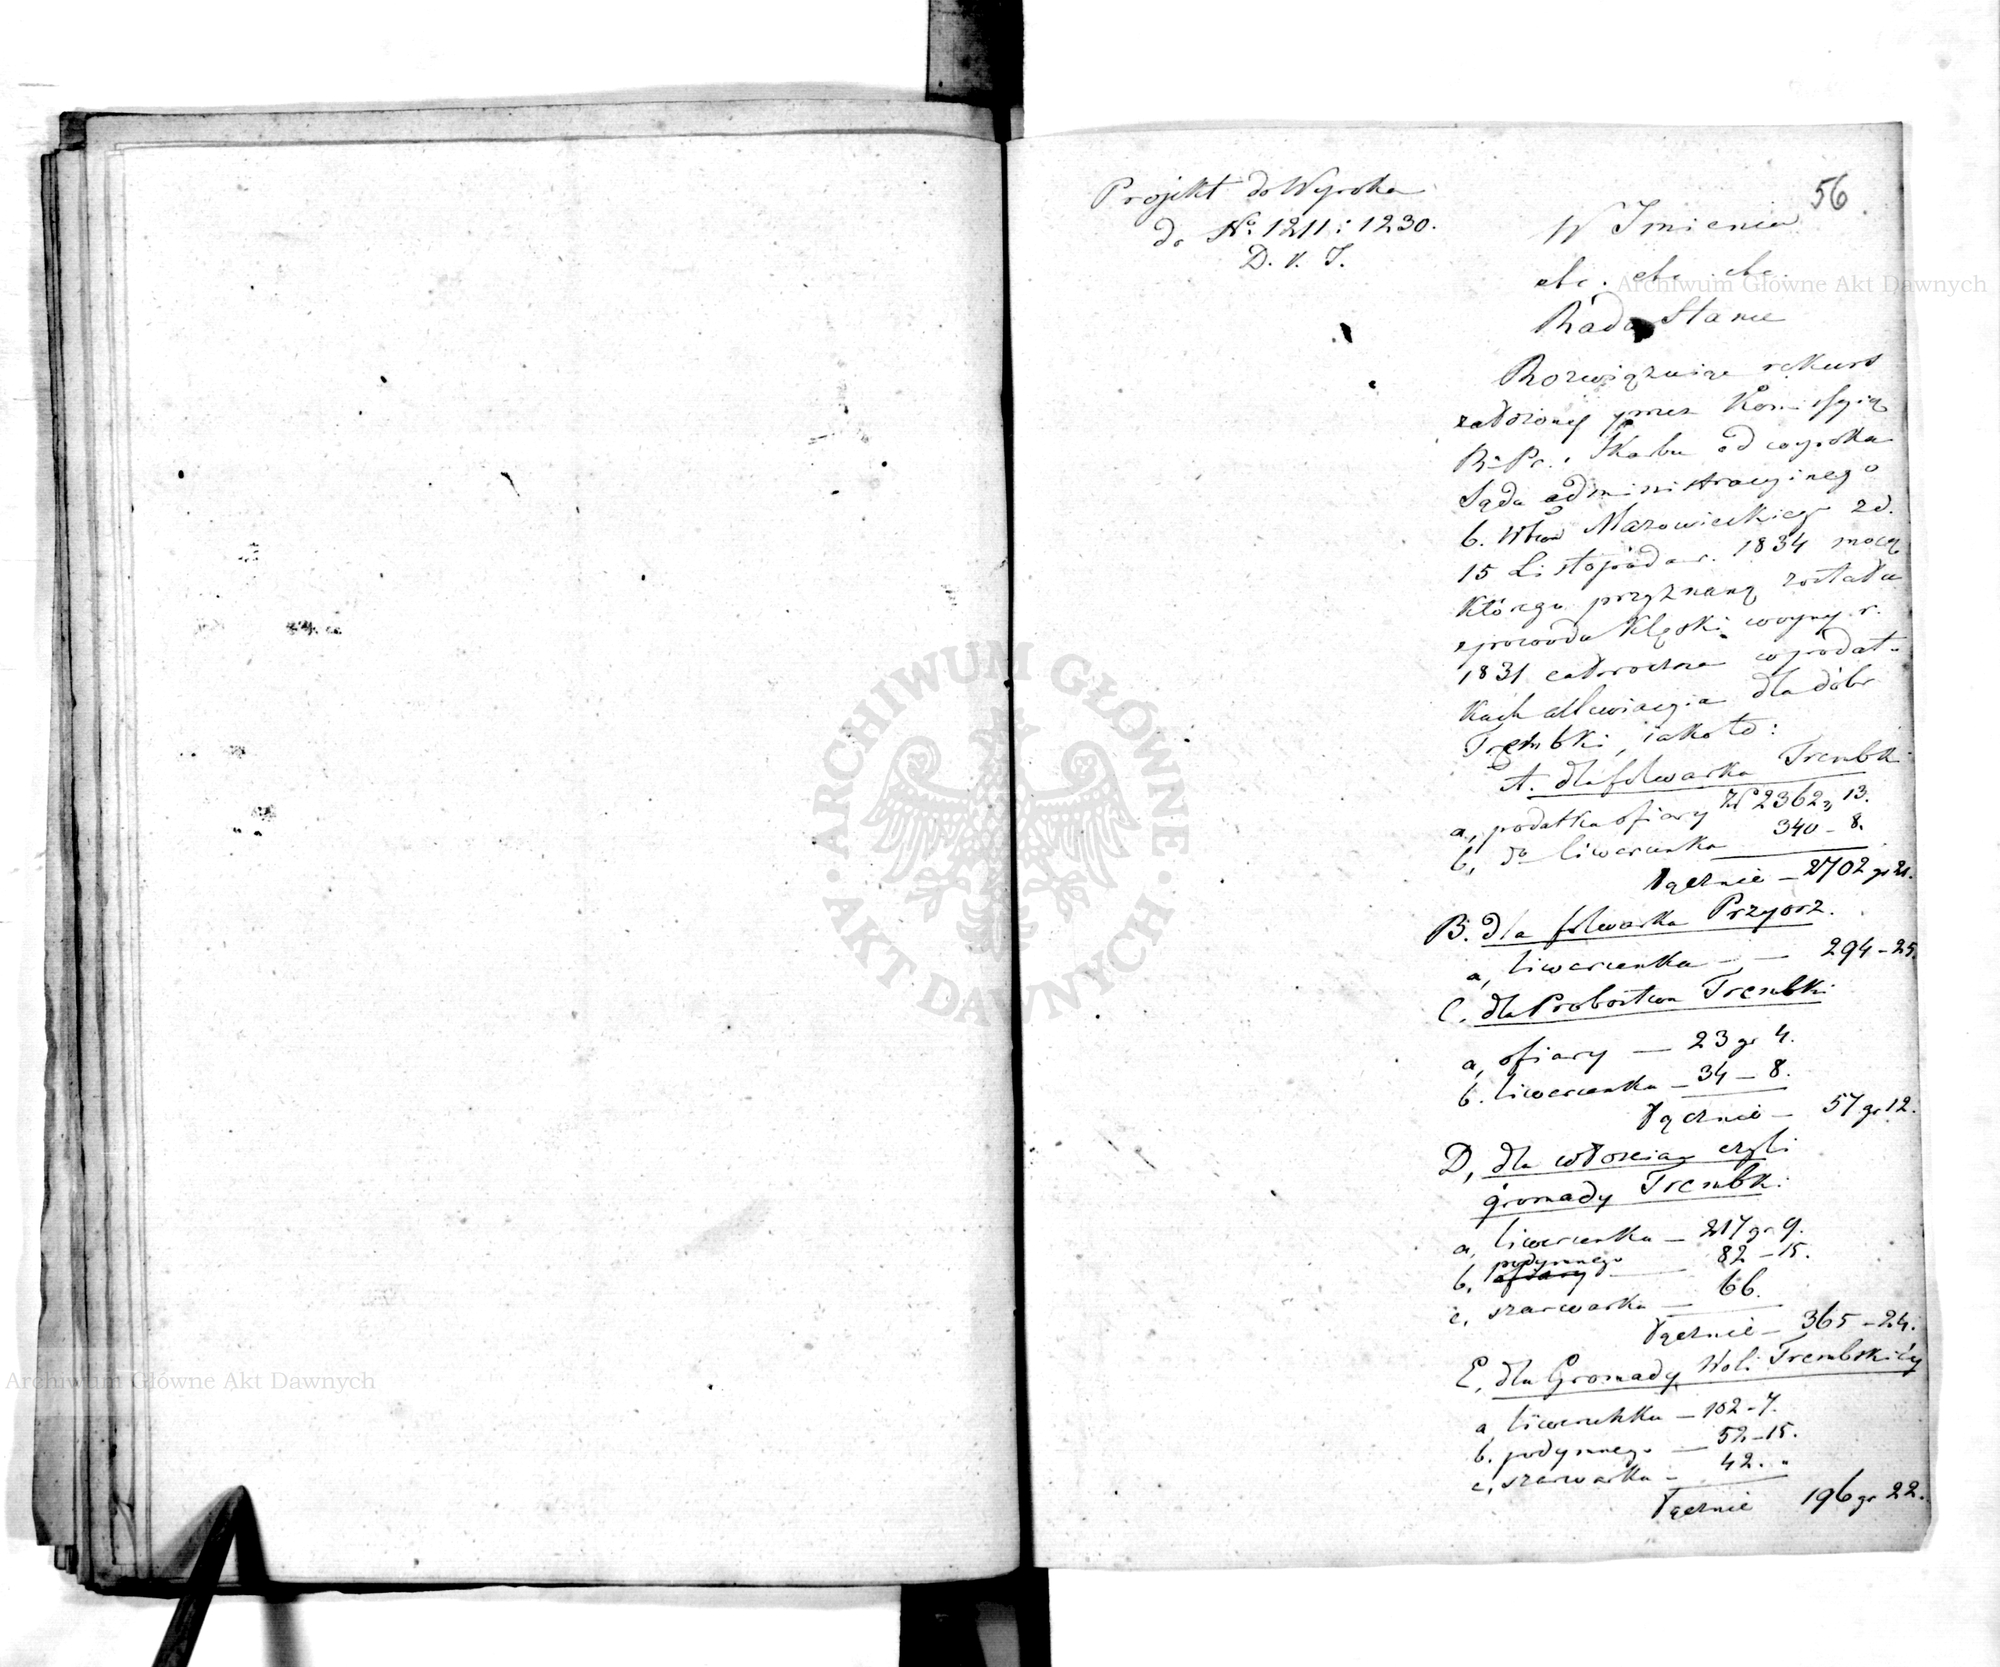 56
Projekt do Wyroku
do No. 1211 i 1230.
D. v. J.
W Imieniu
etc. etc. etc.
Rada Stanu
Rozwiązuiąc rekurs
założony przez Kommissyią
R. P. i Skarbu od wyroku
Sądu administracyinego
b. Wtwa Mazowieckiego z d.
15 Listopada r. 1834 mocą
którego przyznaną została
z powodu klęski woyny r.
1831 całoroczna w podat-
kach allewiacyia dla dóbr
Trembki, iako to:
A. dla folwarku Trembki
a, podatku ofiary Zł 2362 „ 13.
b, do liwerunku 340 – 8.
Łącznie – 2702 gr 21.
B. dla folwarku Przyorz.
a, liwerunku – – 294 – 25
C. dla Probostwa Trembki
a, ofiary – 23 gr 4.
b. liwerunku – 34 – 8.
Łącznie – 57 gr 12.
D, dla włoscian czyli
gromady Trembki
a, liwerunku – 217 gr 9.
b, ofiary podymnego – 82 – 15.
c, szarwarku – 66.
Łącznie – 365 – 24.
E, dla Gromady Woli Trembskiey
a, liwerunku – 102 – 7.
b. podymnego – 52 – 15.
c, szarwarku – 42. „
Łącznie 196 gr 22.
Archiwum Główne Akt Dawnych
Archiwum Główne Akt Dawnych
ARCHIWUM GŁÓWNE · AKT DAWNYCH ·